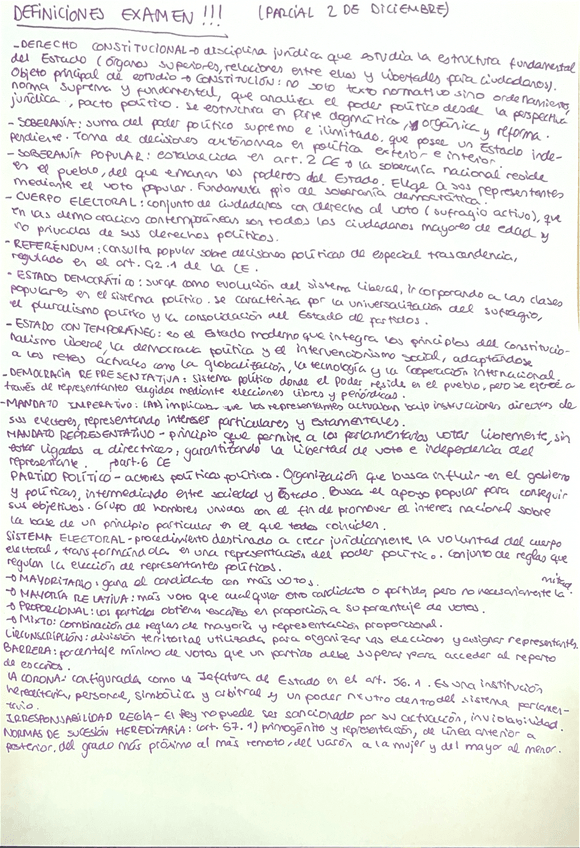 DEFINICIONES EXAMEN !!! (PARCIAL 2 DE DICIEMBRE)
- DERECHO CONSTITUCIONAL → disciplina jurídica que estudia la estructura fundamental
del Estado (órganos superiores, relaciones entre ellos y libertades para ciudadanos).
Objeto principal de estudio → CONSTITUCIÓN: no solo texto normativo sino ordenamiento,
norma suprema y fundamental, que analiza el poder político desde la perspectiva
jurídica, pacto político. Se estructura en parte dogmática, orgánica y reforma.
- SOBERANÍA: suma del poder político supremo e ilimitado, que posee un Estado inde-
pendiente. Toma de decisiones autónomas en política exterior e interior.
- SOBERANÍA POPULAR: establecida en art. 2 CE → la soberanía nacional reside
en el pueblo, del que emanan los poderes del Estado. Elige a sus representantes
mediante el voto popular. Fundamenta ppio de soberanía democrática.
- CUERPO ELECTORAL: conjunto de ciudadanos con derecho al voto (sufragio activo), que
en las democracias contemporáneas son todos los ciudadanos mayores de edad y
no privados de sus derechos políticos.
- REFERÉNDUM: consulta popular sobre decisiones políticas de especial trascendencia,
regulado en el art. 92.1 de la CE.
- ESTADO DEMOCRÁTICO: surge como evolución del sistema liberal, incorporando a las clases
populares en el sistema político. Se caracteriza por la universalización del sufragio,
el pluralismo político y la consolidación del Estado de partidos.
- ESTADO CONTEMPORÁNEO: es el Estado moderno que integra los principios del constitucio-
nalismo liberal, la democracia política y el intervencionismo social, adaptándose
a los retos actuales como la globalización, la tecnología y la cooperación internacional.
- DEMOCRACIA REPRESENTATIVA: sistema político donde el poder reside en el pueblo, pero se ejerce a
través de representantes elegidos mediante elecciones libres y periódicas.
- MANDATO IMPERATIVO: implicaba que los representantes actuaban bajo instrucciones directas de
sus electores, representando intereses particulares y estamentales.
MANDATO REPRESENTATIVO - principio que permite a los parlamentarios votar libremente, sin
estar ligados a directrices, garantizando la libertad de voto e independencia del
representante. part. 6 CE
PARTIDO POLÍTICO - actores políticos políticos. Organización que busca influir en el gobierno
y políticas, intermediando entre sociedad y Estado. Busca el apoyo popular para conseguir
sus objetivos. Grupo de hombres unidos con el fin de promover el interés nacional sobre
la base de un principio particular en el que todos coinciden.
SISTEMA ELECTORAL - procedimiento destinado a crear jurídicamente la voluntad del cuerpo
electoral, transformándola en una representación del poder político. Conjunto de reglas que
regulan la elección de representantes políticos.
→ MAYORITARIO: gana el candidato con más votos.
→ MAYORÍA RELATIVA: más voto que cualquier otro candidato o partido, pero no necesariamente la mitad
→ PROPORCIONAL: los partidos obtienen escaños en proporción a su porcentaje de votos.
→ MIXTO: combinación de reglas de mayoría y representación proporcional.
CIRCUNSCRIPCIÓN: división territorial utilizada para organizar las elecciones y asignar representantes.
BARRERA: porcentaje mínimo de votos que un partido debe superar para acceder al reparto
de escaños.
LA CORONA: configurada como la Jefatura de Estado en el art. 56.1. Es una institución
hereditaria, personal, simbólica y arbitral y un poder neutro dentro del sistema parlamen-
tario.
IRRESPONSABILIDAD REGIA - El Rey no puede ser sancionado por su actuación, inviolabilidad.
NORMAS DE SUCESIÓN HEREDITARIA: (art. 57.1) primogénito y representación, de línea anterior a
posterior, del grado más próximo al más remoto, del varón a la mujer y del mayor al menor.